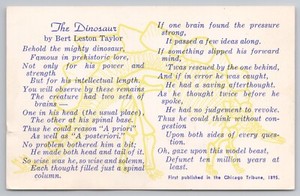 The Dinosaur
by Bert Leston Taylor
Behold the mighty dinosaur,
Famous in prehistoric lore,
Not only for his power and
strength
But for his intellectual length.
You will observe by these remains
The creature had two sets of
brains—
One in his head (the usual place),
The other at his spinal base.
Thus he could reason "A priori"
As well as "A posteriori."
No problem bothered him a bit;
He made both head and tail of it.
So wise was he, so wise and solemn,
Each thought filled just a spinal
column.
If one brain found the pressure
strong,
It passed a few ideas along.
If something slipped his forward
mind,
'Twas rescued by the one behind,
And if in error he was caught,
He had a saving afterthought.
As he thought twice before he
spoke,
He had no judgement to revoke.
Thus he could think without con-
gestion
Upon both sides of every ques-
tion.
Oh, gaze upon this model beast,
Defunct ten million years at
least.
First published in the Chicago Tribune, 1895.